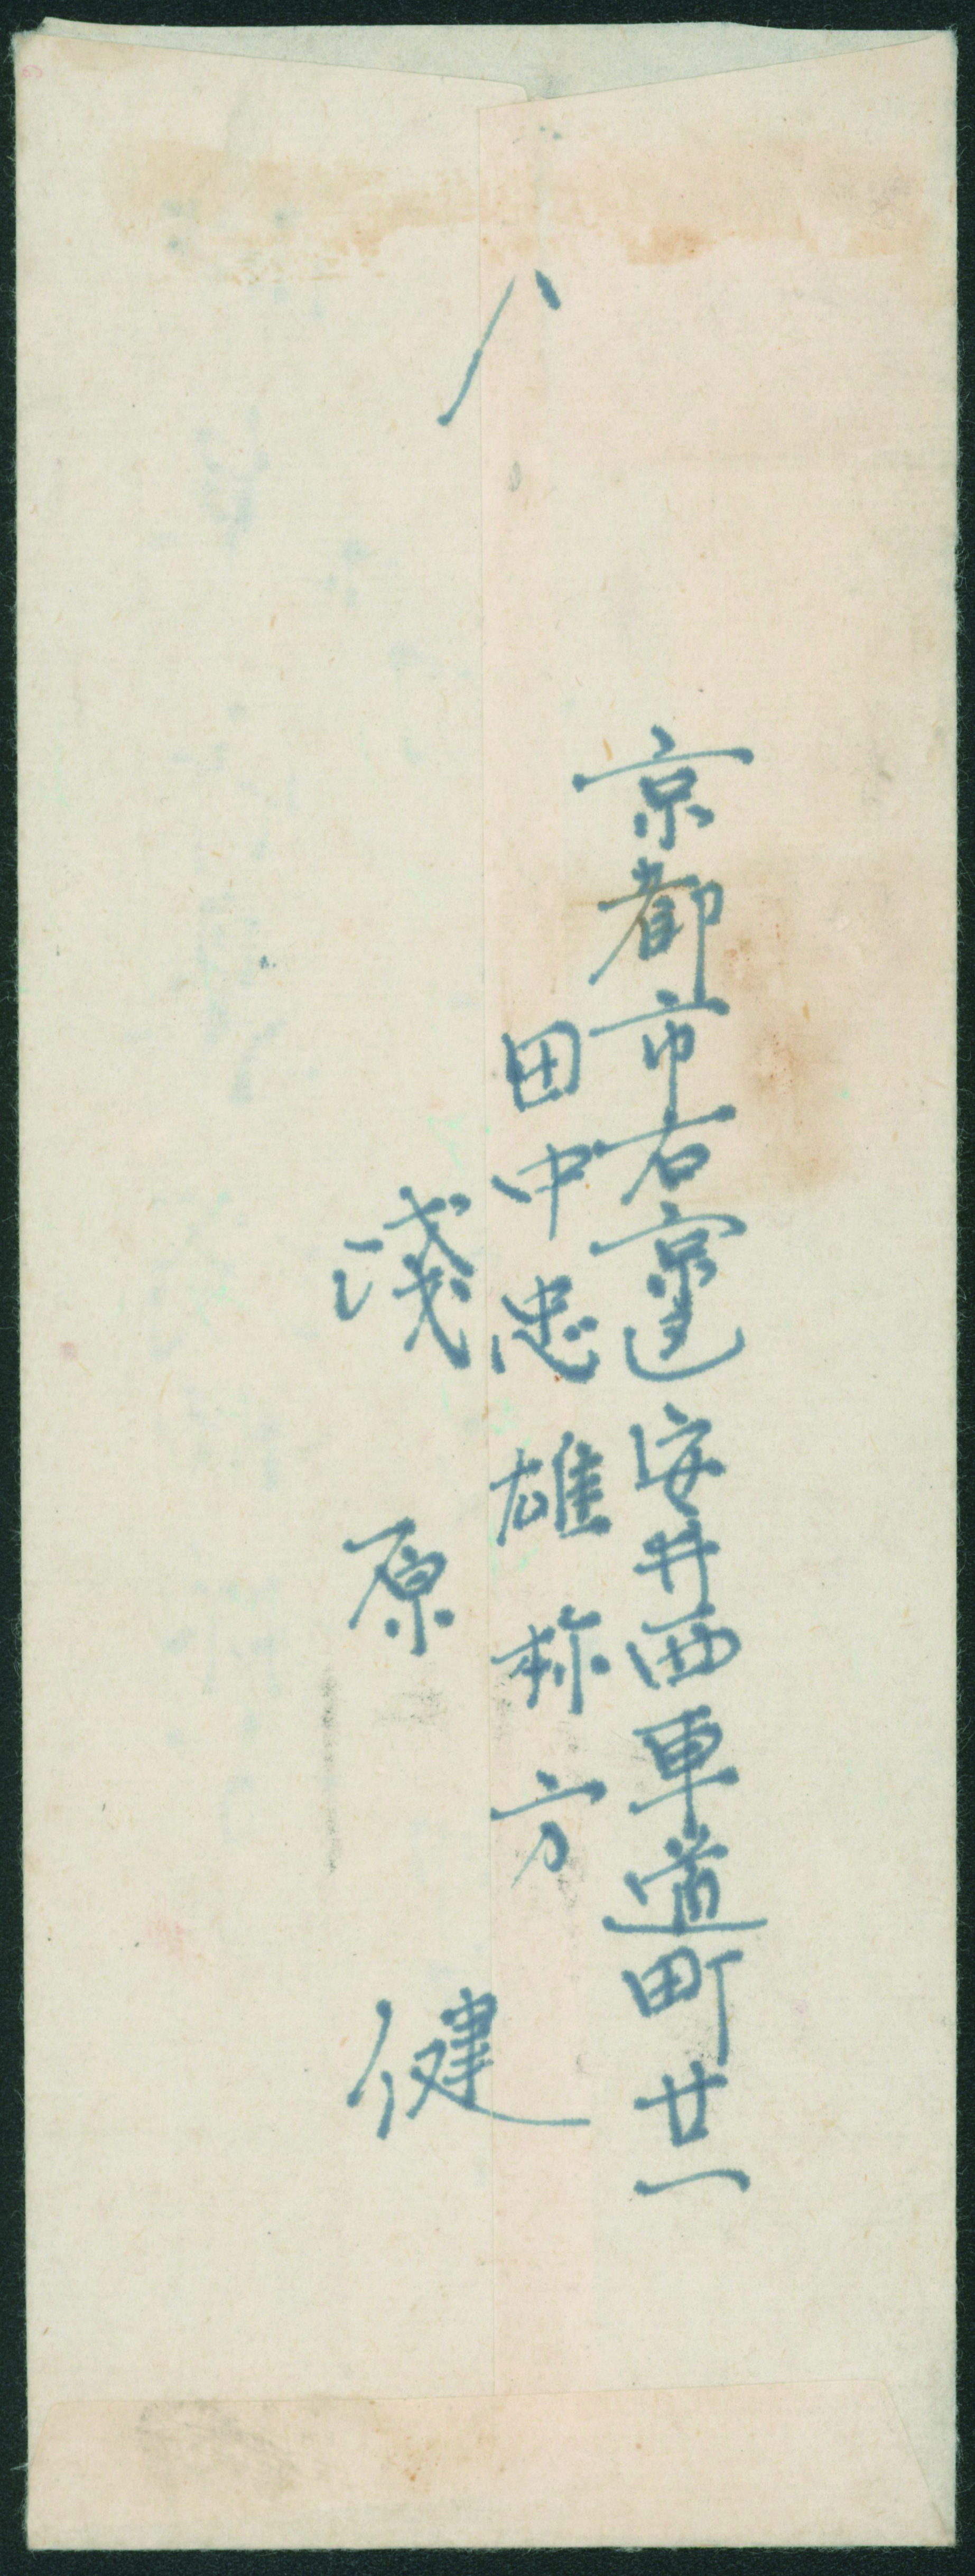 京都市右京區安井西車道町廿一
田中忠雄様方
淺原健